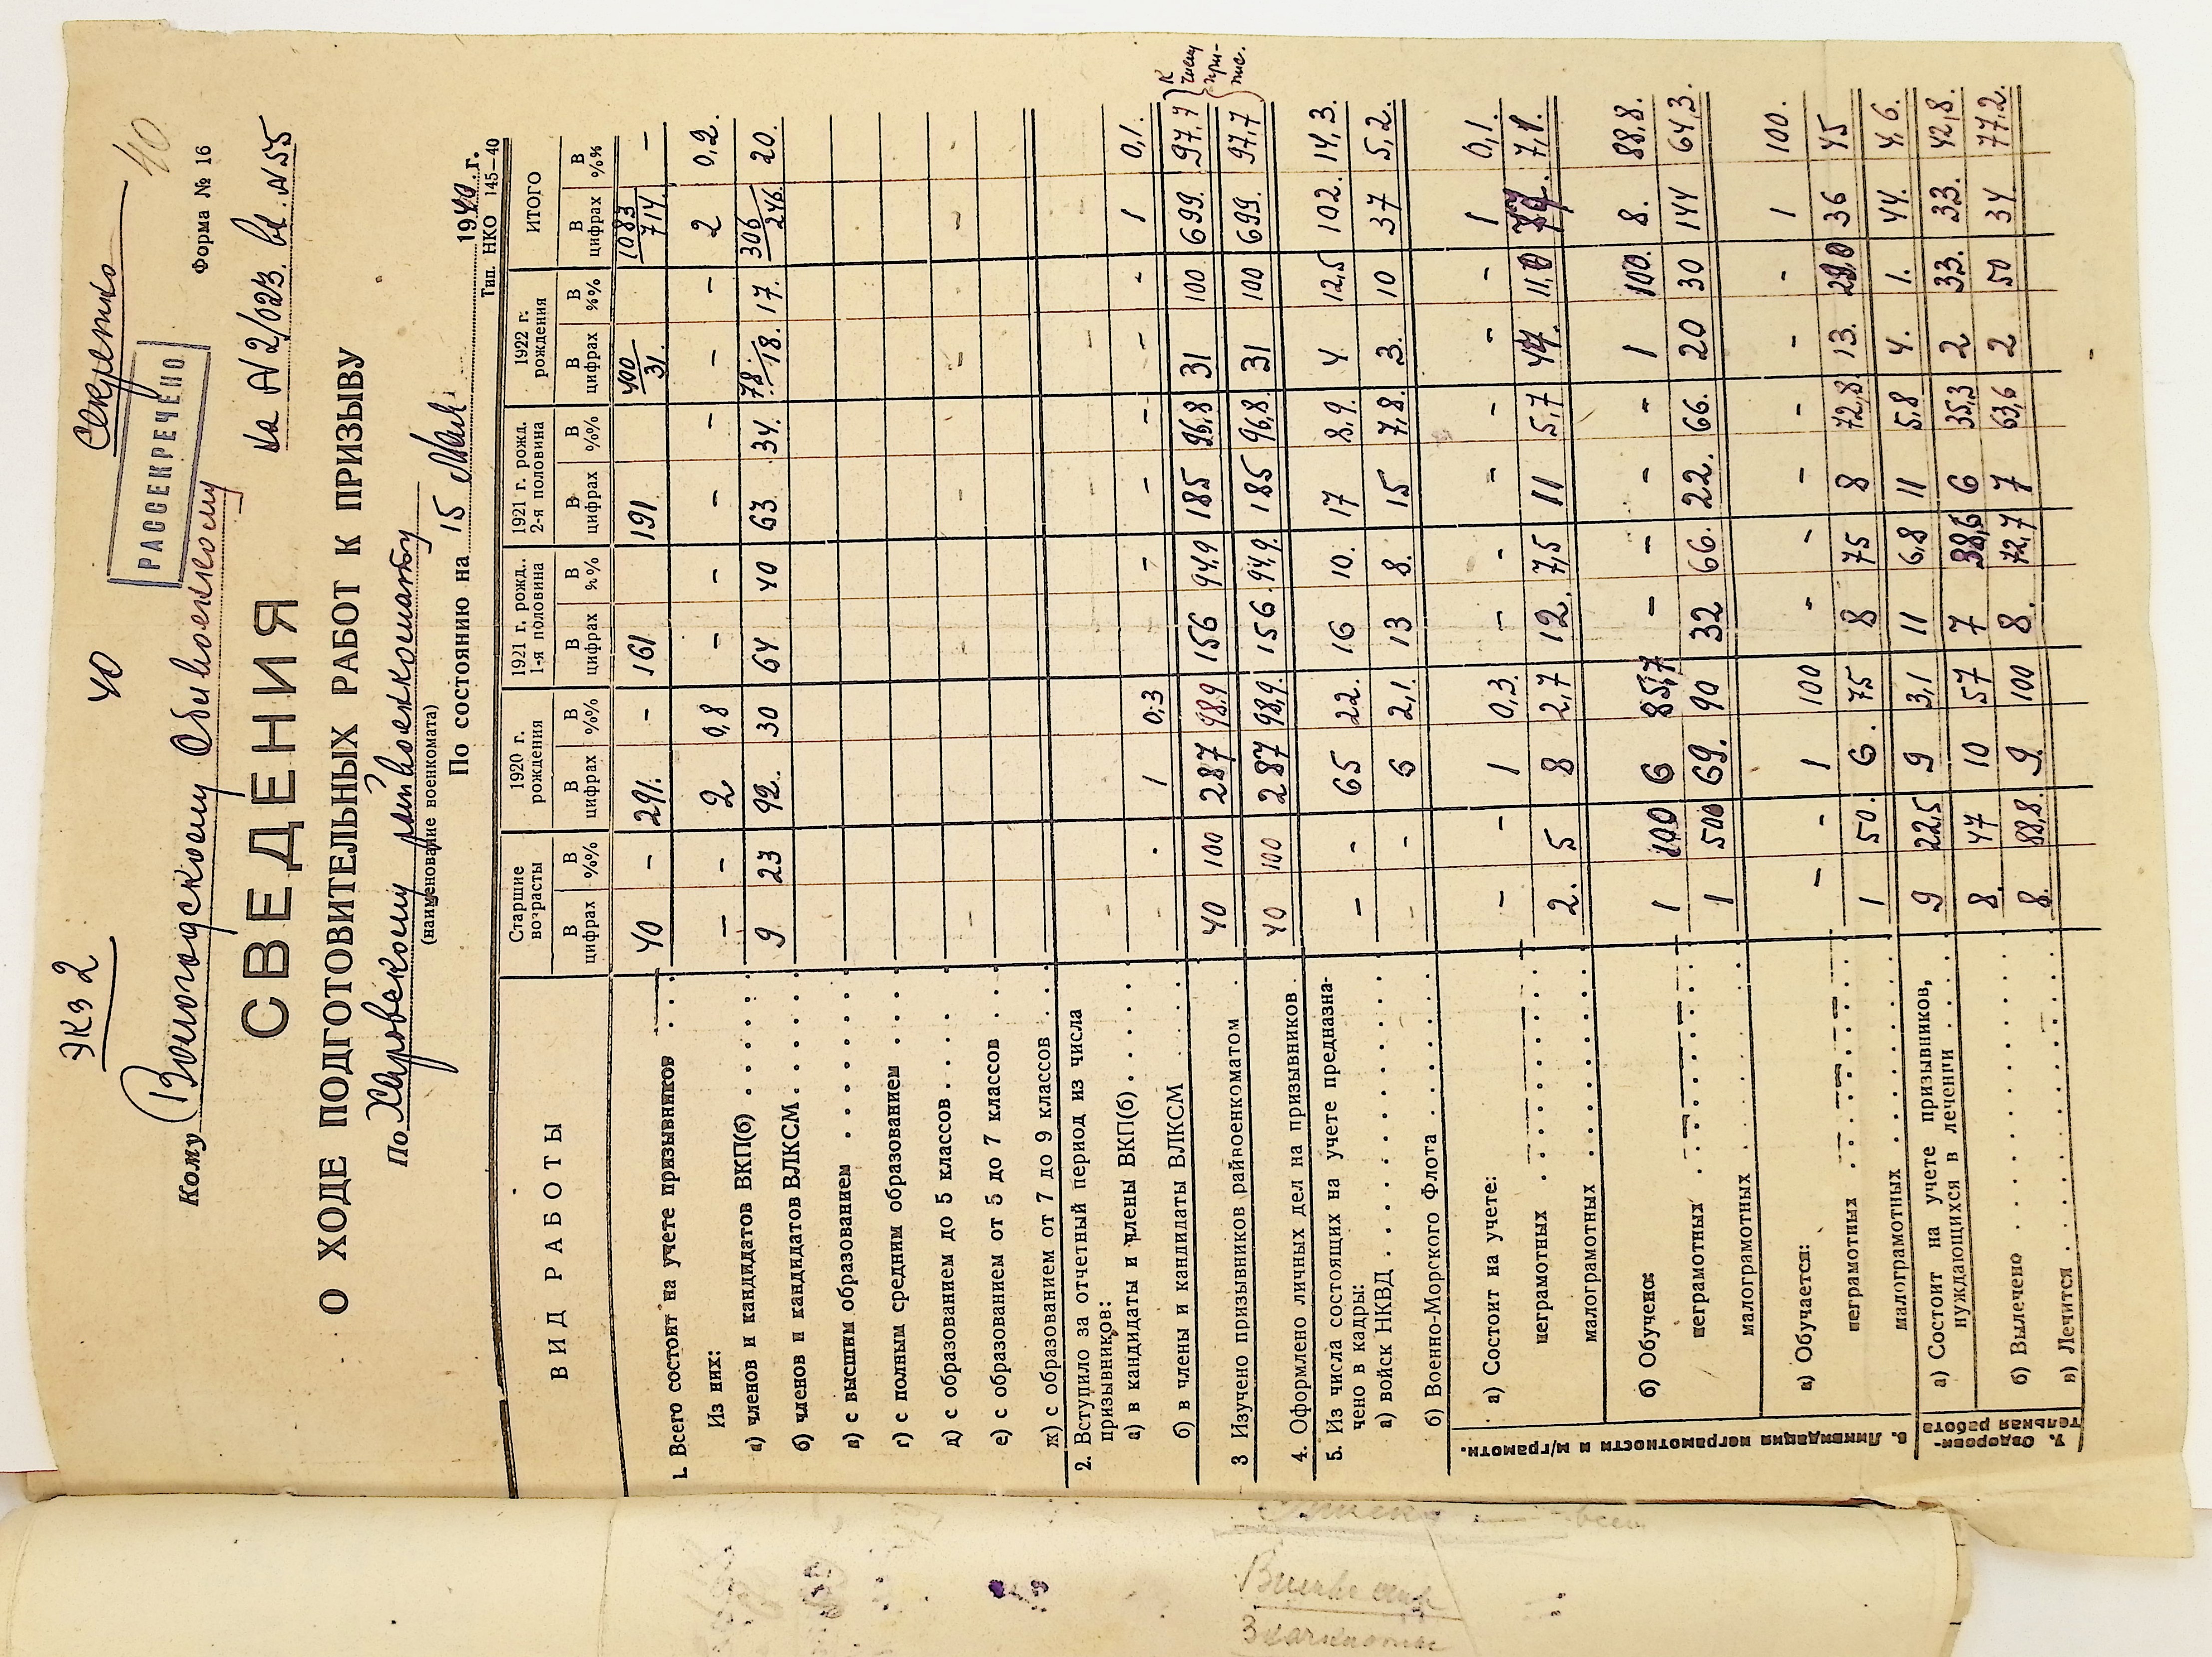 ЭКЗ 2
40
Секретно
40
РАССЕКРЕЧЕНО
Форма № 16
Кому Вологодскому Облвоенкому
на №2/023. вх. №55
СВЕДЕНИЯ
О ХОДЕ ПОДГОТОВИТЕЛЬНЫХ РАБОТ К ПРИЗЫВУ
По Харовскому райвоенкомату
(наименование военкомата)
По состоянию на 15 Мая 1940 г.
Тип. НКО 145—40
ВИД РАБОТЫ Старшие возрасты 1920 г. рождения 1921 г. рожд. 1-я половина 1921 г. рожд. 2-я половина 1922 г. рождения ИТОГО
В цифрах В %% В цифрах В %% В цифрах В %% В цифрах В %% В цифрах В %% В цифрах В %%
1. Всего состоит на учете призывников 40 — 291. - 161 191 400/31. 1083/714. —
Из них:
а) членов и кандидатов ВКП(б) — — 2 0,8 - - - - - - 2 0,2.
б) членов и кандидатов ВЛКСМ 9 23 92. 30 64 40 63 34. 78/18. 17. 306/246. 20.
в) с высшим образованием
г) с полным средним образованием
д) с образованием до 5 классов
е) с образованием от 5 до 7 классов
ж) с образованием от 7 до 9 классов
2. Вступило за отчетный период из числа
призывников:
а) в кандидаты и члены ВКП(б) 1 0,3 - - - - - - 1 0,1.
б) в члены и кандидаты ВЛКСМ 40 100 287 98.9 156 94,9 185 96,8 31 100 699. 97,7 } к числу припис.
3 Изучено призывников райвоенкоматом 40 100 287 98,9. 156. 94,9. 185 96,8. 31 100 699. 97,7
4. Оформлено личных дел на призывников
5. Из числа состоящих на учете предназна-
чено в кадры:
а) войск НКВД — - 65 22. 16 10. 17 8,9. 4 12,5 102. 14,3.
б) Военно-Морского Флота - - 6 2,1. 13 8. 15 7,8. 3. 10 37 5,2.
6. Ликвидация неграмотности и м/грамотн.
а) Состоит на учете:
неграмотных - - 1 0,3. - - - - - - 1 0,1.
малограмотных 2. 5 8 2,7 12. 7,5 11 5,7
б) Обучено:
неграмотных 1 100 6 85,7 - - - - 1 100. 8. 88,8.
малограмотных 1 500 69. 90 32 66. 22. 66. 20 30 144 64,3.
в) Обучается:
неграмотных — - 1 100 - - - - - - 1 100.
малограмотных 1 50. 6. 75 8 75 8 72,8 13. 36 45
7. Оздоровительная работа
а) Состоит на учете призывников,
нуждающихся в лечении 9 22,5 9 3,1 11 6,8 11 5,8 4. 1. 44. 4,6.
б) Вылечено 8. 47 10 57 7 38,6 6 35,3 2 33. 33. 42,8.
в) Лечится 8. 88,8. 9. 100 8. 72,7 7 63,6 2 50 34 77,2.